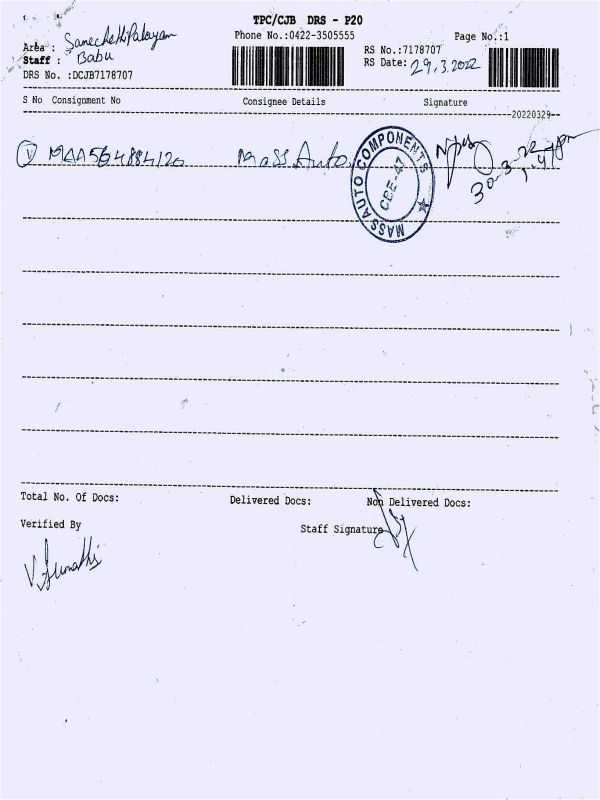 TPC/CJB DRS - P20
Phone No.:0422-3505555
Page No.:1
Area :
Staff : Babu
RS No.:7178707
RS Date: 29.3.2022
DRS No. :DCJB7178707
S No Consignment No Consignee Details Signature
20220329
1 MAA564884120 Mass Auto
MASS AUTO COMPONENTS
CBE-47
30-3-22
Total No. Of Docs: Delivered Docs: Non Delivered Docs:
Verified By Staff Signature